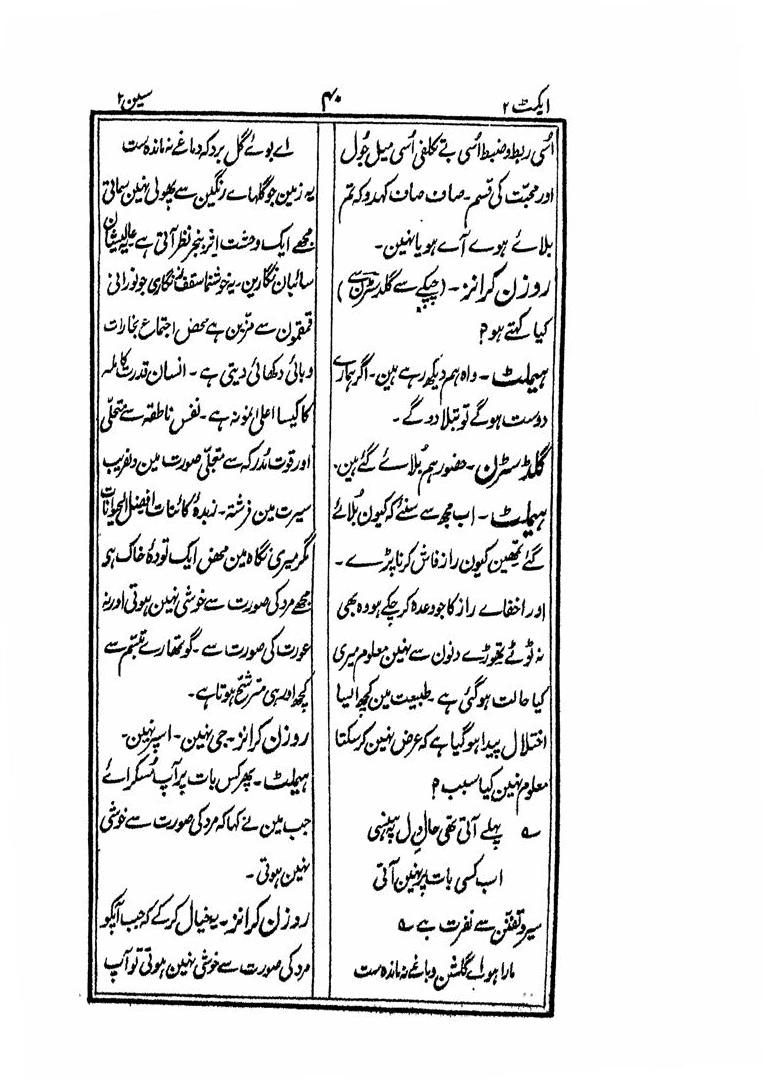 ایکٹ ۲
۴۰
سین ۲
اُسی ربط و ضبط اُسی بے تکلفی اُسی میل جُول
اور محبّت کی قسم۔ صاف صاف کہدو کہ تم
بلائے ہوے آے ہو یا نہین۔
روزن کرانز۔ (چپکے سے گلڈسٹرن سے)
کیا کہتے ہو؟
ہیملٹ۔ واہ ہم دیکھ رہے ہین۔ اگر ہمارے
دوست ہوگے تو بتلا دوگے۔
گلڈسٹرن۔ حضور ہم بُلائے گئے ہین۔
ہیملٹ۔ اب مجھ سے سنئے کہ کیون بُلائے
گئے تمھین کیون راز فاش کرنا پڑے۔
اور اخفاے راز کا جو وعدہ کر چکے ہو وہ بھی
نہ ٹوٹے تھوڑے دنون سے نہین معلوم میری
کیا حالت ہوگئی ہے۔ طبیعت مین کچھ ایسا
اختلال پیدا ہوگیا ہے کہ عرض نہین کرسکتا
معلوم نہین کیا سبب؟
؎ پہلے آتی تھی حالِ دل پہ ہنسی
اب کسی بات پر نہین آتی
سیر و تفنن سے نفرت ہے ؎
مارا ہواے گلشن و باغے نہ ماندہ ست
اے بوئے گل برو کہ دماغے نہ ماندہ ست
یہ زمین جو گلہاے رنگین سے پھولی نہین سماتی
مجھے ایک وحشت افزا بنجر نظر آتی ہے عالیشان
سائبان نگارین۔ یہ خوشنما سقف نگاری جو نورانی
قمقمون سے مزین ہے محض اجتماع بخارات
وبائی دکھائی دیتی ہے۔ انسان قدرت کاملہ
کا کیسا اعلیٰ نمونہ ہے۔ نفس ناطقہ سے متحلّی
اور قوت مُدرکہ سے متجلّی صورت مین دلفریب
سیرت مین فرشتہ۔ زبدۂ کائنات افضل الحیوانات
مگر میری نگاہ مین محض ایک تودۂ خاک ہو
مجھے مرد کی صورت سے خوشی نہین ہوتی اور نہ
عورت کی صورت سے۔ گو تمھارے تبسّم سے
کچھ اور ہی مترشّح ہوتا ہے۔
روزن کرانز۔ جی نہین۔ اسپر نہین۔
ہیملٹ۔ پھر کس بات پر آپ مُسکرائے
جب مین نے کہا کہ مرد کی صورت سے خوشی
نہین ہوتی۔
روزن کرانز۔ یہ خیال کرکے کہ جب آپکو
مرد کی صورت سے خوشی نہین ہوتی تو آپ